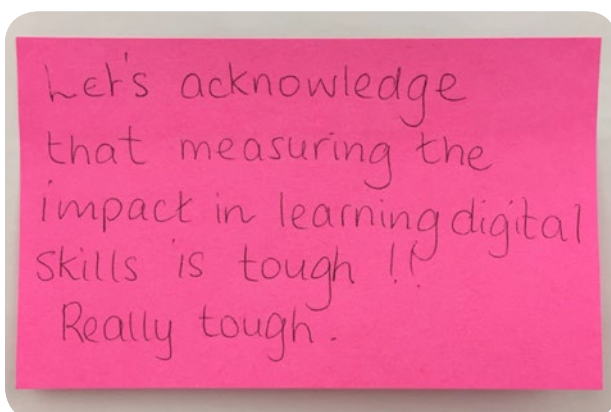 Let's acknowledge
that measuring the
impact in learning digital
skills is tough !!
Really tough.